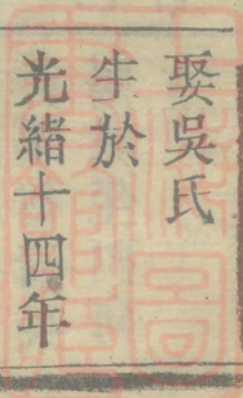 娶吳氏
生於
光緒十四年